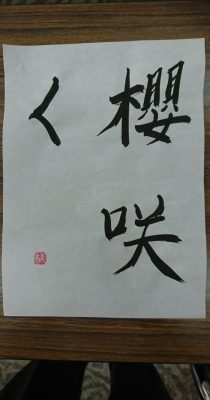 櫻咲
く